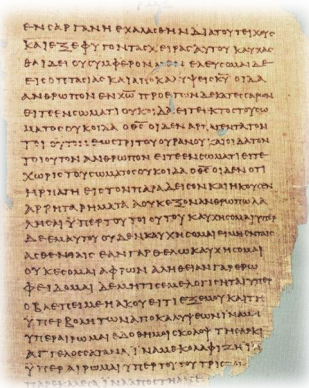 ΕΝϹΑΡΓΑΝΗΕΧΑΛΑϹΘΗΝΔΙΑΤΟΥΤΕΙΧΟΥϹ
ΚΑΙΕΞΕΦΥΓΟΝΤΑϹΧΕΙΡΑϹΑΥΤΟΥΚΑΥΧΑϹ
ΘΑΙΔΕΙΟΥϹΥΜΦΕΡΟΝΜΕΝΕΛΕΥϹΟΜΑΙΔΕ
ΕΙϹΟΠΤΑϹΙΑϹΚΑΙΑΠΟΚΑΛΥΨΕΙϹΚ̅Υ̅ΟΙΔΑ
ΑΝΘΡΩΠΟΝΕΝΧ̅Ω̅ΠΡΟΕΤΩΝΔΕΚΑΤΕϹϹΑΡΩΝ
ΕΙΤΕΕΝϹΩΜΑΤΙΟΥΚΟΙΔΑΕΙΤΕΕΚΤΟϹΤΟΥϹΩ
ΜΑΤΟϹΟΥΚΟΙΔΑΟΘ̅Ϲ̅ΟΙΔΕΝΑΡΠΑΓΕΝΤΑΤΟΝ
ΤΟΙΟΥΤΟΝΕΩϹΤΡΙΤΟΥΟΥΡΑΝΟΥΚΑΙΟΙΔΑΤΟΝ
ΤΟΙΟΥΤΟΝΑΝΘΡΩΠΟΝΕΙΤΕΕΝϹΩΜΑΤΙΕΙΤΕ
ΧΩΡΙϹΤΟΥϹΩΜΑΤΟϹΟΥΚΟΙΔΑΟΘ̅Ϲ̅ΟΙΔΕΝΟΤΙ
ΗΡΠΑΓΗΕΙϹΤΟΝΠΑΡΑΔΕΙϹΟΝΚΑΙΗΚΟΥϹΕΝ
ΑΡΡΗΤΑΡΗΜΑΤΑΑΟΥΚΕΞΟΝΑΝΘΡΩΠΩΛΑ
ΛΗϹΑΙΥΠΕΡΤΟΥΤΟΙΟΥΤΟΥΚΑΥΧΗϹΟΜΑΙΥΠΕΡ
ΔΕΕΜΑΥΤΟΥΟΥΔΕΝΚΑΥΧΗϹΟΜΑΙΕΙΜΗΕΝΤΑΙϹ
ΑϹΘΕΝΕΙΑΙϹΕΑΝΓΑΡΘΕΛΩΚΑΥΧΗϹΟΜΑΙ
ΟΥΚΕϹΟΜΑΙΑΦΡΩΝΑΛΗΘΕΙΑΝΓΑΡΕΡΩ
ΦΕΙΔΟΜΑΙΔΕΜΗΤΙϹΕΜΕΛΟΓΙϹΗΤΑΙΥΠΕΡ
ΟΒΛΕΠΕΙΜΕΗΑΚΟΥΕΙΤΙΕΞΕΜΟΥΚΑΙΤΗ
ΥΠΕΡΒΟΛΗΤΩΝΑΠΟΚΑΛΥΨΕΩΝΙΝΑΜΗ
ΥΠΕΡΑΙΡΩΜΑΙΕΔΟΘΗΜΟΙϹΚΟΛΟΨΤΗϹΑΡΚΙ
ΑΓΓΕΛΟϹϹΑΤΑΝΑΙΝΑΜΕΚΟΛΑΦΙΖΗΙΝ
ΥΠΕΡΑΙΡΩΜΑΙΥΠΕΡΤΟΥΤΟΥΤΡΙϹ